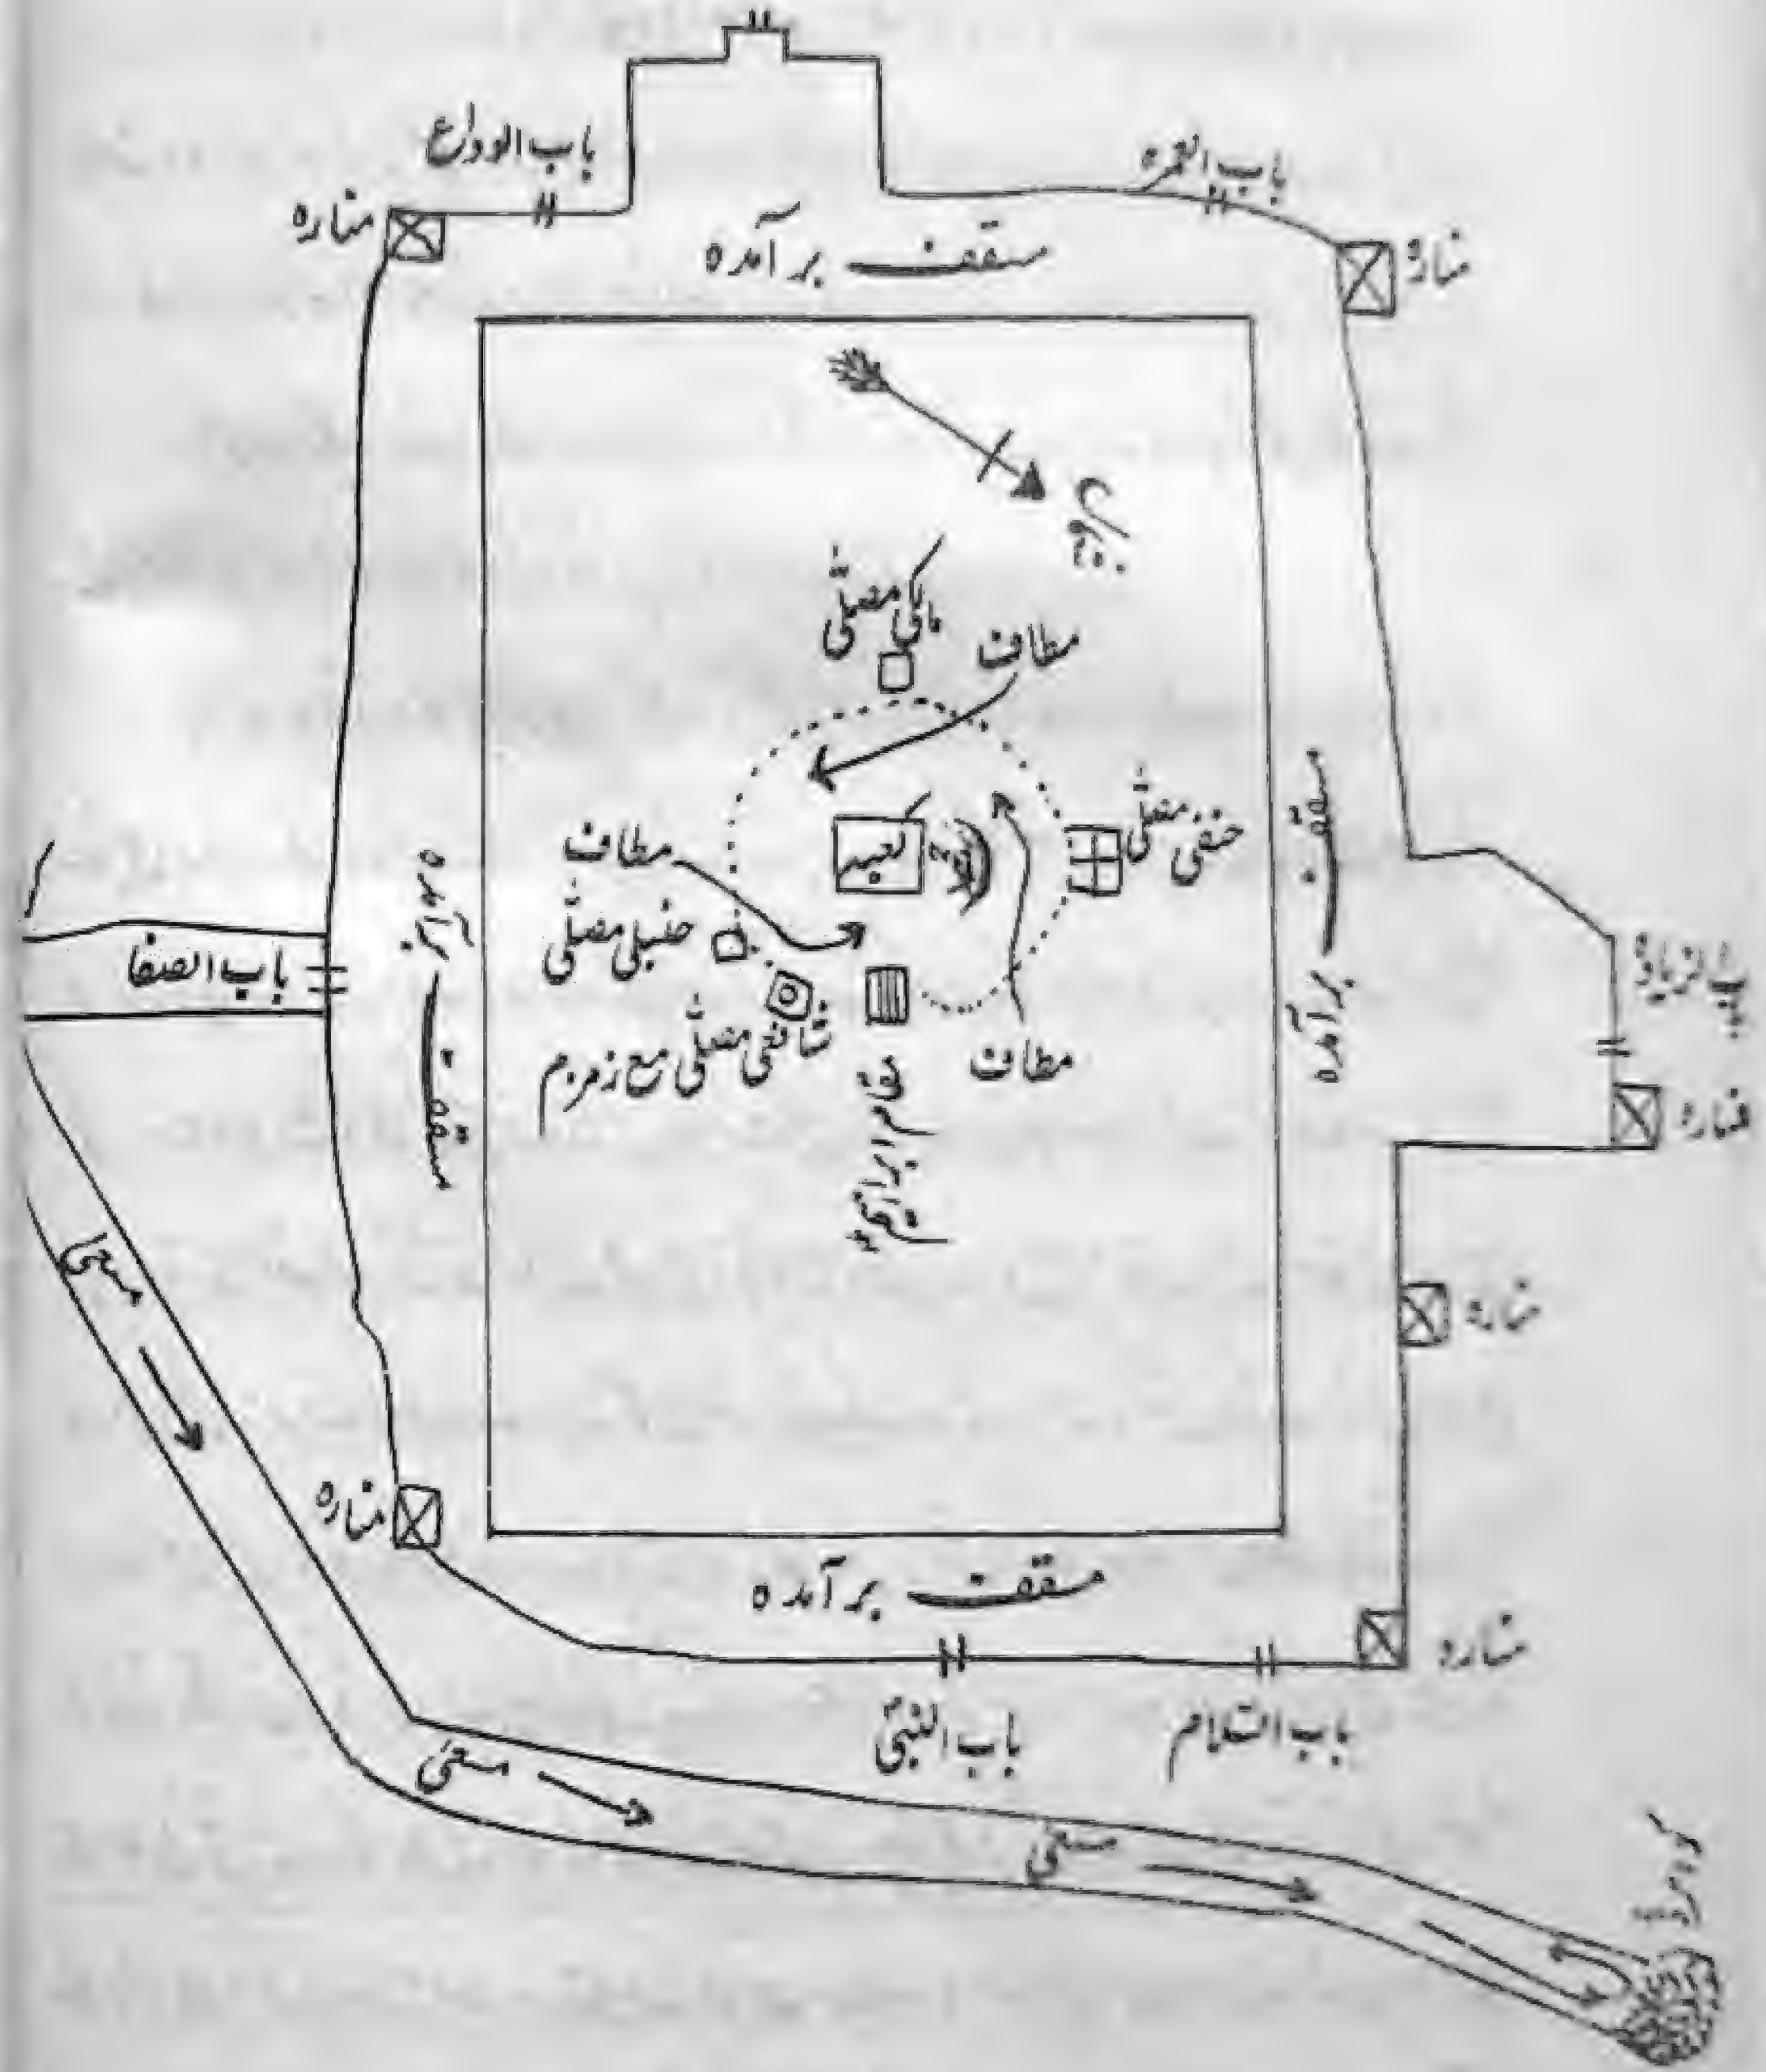 باب الوداع
باب العمرہ
منارہ
منارہ
مسقف برآمدہ
مالکی مصلّٰی
مطاف
حنفی مصلّٰی
کعبہ
مطاف
حنبلی مصلّٰی
شافعی مصلّٰی مع زمزم
مقام ابراہیمؑ
مطاف
مسقف برآمدہ
مسقف برآمدہ
باب الصفا
باب الزیادہ
منارہ
منارہ
مسعیٰ
منارہ
مسقف برآمدہ
منارہ
باب النبیؐ
باب السلام
مسعیٰ
مسعیٰ
کوہ مروہ